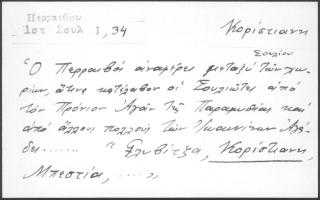 Περραιβου
Ιστ Σουλ Ι, 34
Κορίστιανη
Σουλίου
"Ο Περραιβός αναφέρει μεταξύ των χω-
ρίων, άτινα κατέλαβον οι Σουλιώται από
τον Πρόνιον Αγάν της Παραμυθίας και
από άλλους πολλούς των Ιωαννίνων Αγά-
δες...... " Γλυβίτζα, Κορίστιανη,
Μπεστία, ....,